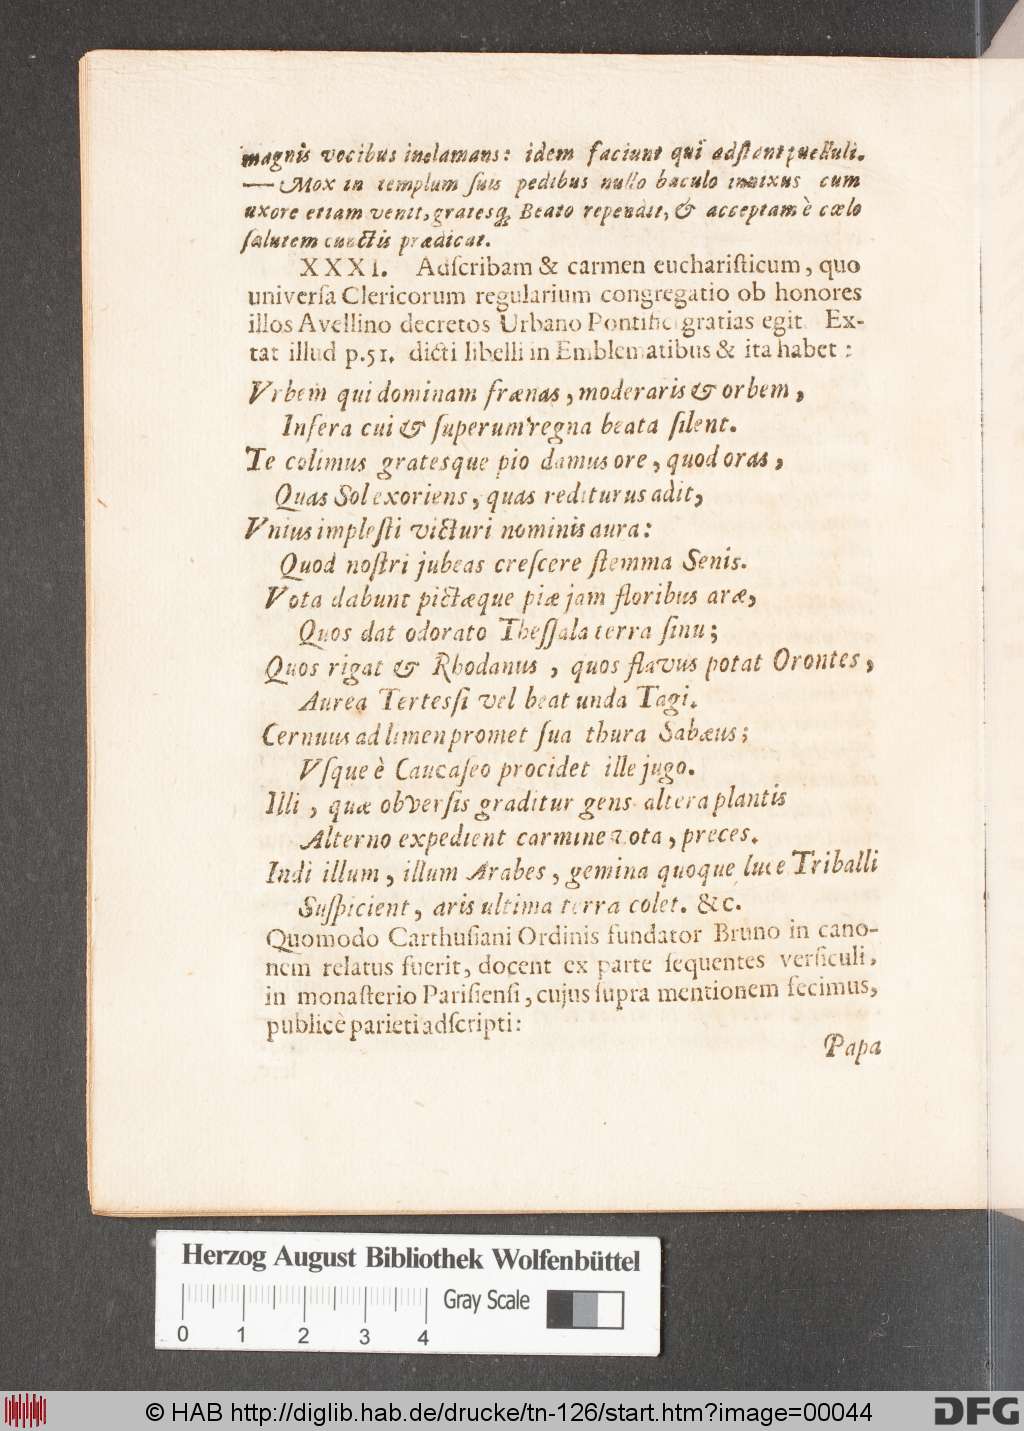 magnis vocibus inclamans: idem faciunt qui adstant puelluli.
— Mox in templum suis pedibus nullo baculo innixus cum
uxore etiam venit, gratesq; Beato rependit, & acceptam è cœlo
salutem cunctis prædicat.
XXXI. Adſcribam & carmen euchariſticum, quo
univerſa Clericorum regularium congregatio ob honores
illos Avellino decretos Urbano Pontifici gratias egit. Ex-
tat illud p.51. dicti libelli in Emblematibus & ita habet:
Vrbem qui dominam frænas, moderaris & orbem,
Inſera cui & ſuperum regna beata ſilent.
Te colimus gratesque pio damus ore, quod oras,
Quas Sol exoriens, quas rediturus adit,
Vnius impleſti victuri nominis aura:
Quod noſtri jubeas creſcere ſtemma Senis.
Vota dabunt pictæque piæ jam floribus aræ,
Quos dat odorato Theſſala terra ſinu;
Quos rigat & Rhodanus, quos flavus potat Orontes,
Aurea Terteſſi vel beat unda Tagi.
Cernuus ad limen promet ſua thura Sabæus;
Vſque è Caucaſeo procidet ille jugo.
Illi, quæ obverſis graditur gens altera plantis
Alterno expedient carmine vota, preces.
Indi illum, illum Arabes, gemina quoque luce Triballi
Suſpicient, aris ultima terra colet. &c.
Quomodo Carthuſiani Ordinis fundator Bruno in cano-
nem relatus fuerit, docent ex parte ſequentes verſiculi,
in monaſterio Pariſienſi, cujus ſupra mentionem fecimus,
publicè parieti adſcripti:
Papa
Herzog August Bibliothek Wolfenbüttel
Gray Scale
0 1 2 3 4
© HAB http://diglib.hab.de/drucke/tn-126/start.htm?image=00044
DFG